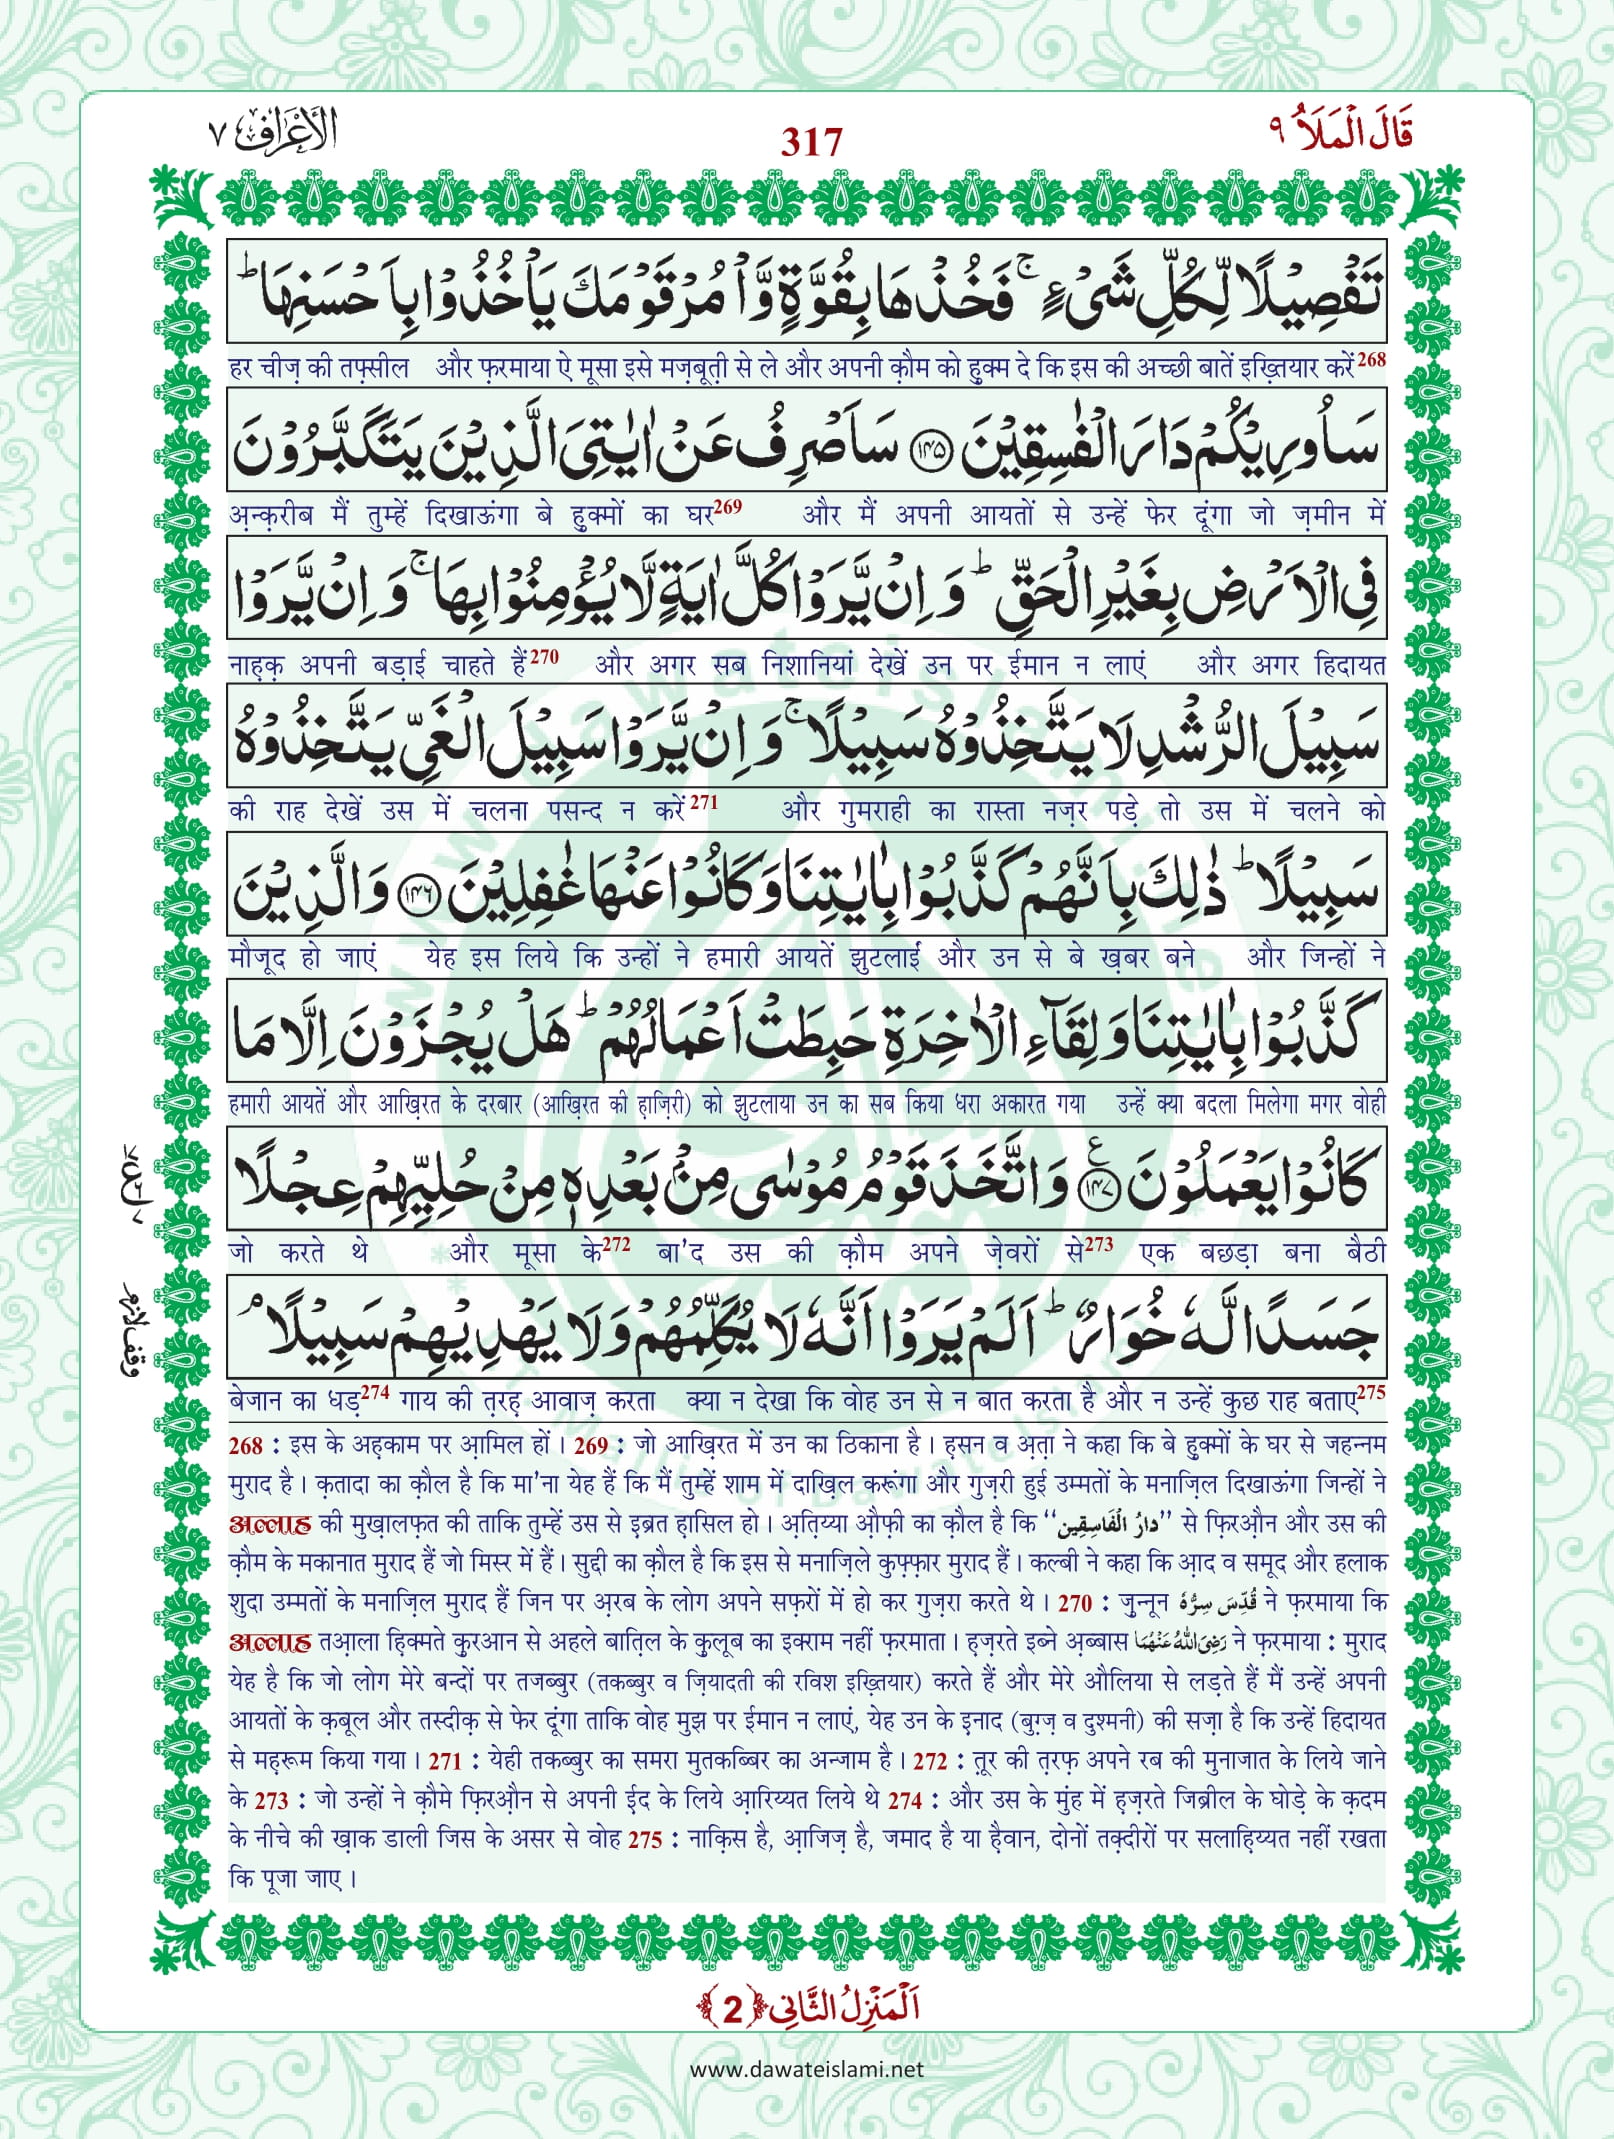 الأعراف ٧
317
قَالَ الْمَلَاُ ٩
تَفْصِيْلًا لِّكُلِّ شَیْءٍ ۚ فَخُذْهَا بِقُوَّةٍ وَّاْمُرْ قَوْمَكَ یَاْخُذُوْا بِاَحْسَنِهَا ؕ
हर चीज़ की तफ़्सील और फ़रमाया ऐ मूसा इसे मज़बूत़ी से ले और अपनी क़ौम को हुक्म दे कि इस की अच्छी बातें इख़्तियार करें268
سَاُورِیْكُمْ دَارَ الْفٰسِقِیْنَ ﴿۱۴۵﴾ سَاَصْرِفُ عَنْ اٰیٰتِیَ الَّذِیْنَ یَتَكَبَّرُوْنَ
अ़न्क़रीब मैं तुम्हें दिखाऊंगा बे हुक्मों का घर269 और मैं अपनी आयतों से उन्हें फेर दूंगा जो ज़मीन में
فِی الْاَرْضِ بِغَیْرِ الْحَقِّ ؕ وَ اِنْ یَّرَوْا كُلَّ اٰیَةٍ لَّا یُؤْمِنُوْا بِهَا ۚ وَ اِنْ یَّرَوْا
नाह़क़ अपनी बड़ाई चाहते हैं270 और अगर सब निशानियां देखें उन पर ईमान न लाएं और अगर हिदायत
سَبِیْلَ الرُّشْدِ لَا یَتَّخِذُوْهُ سَبِیْلًا ۚ وَ اِنْ یَّرَوْا سَبِیْلَ الْغَیِّ یَتَّخِذُوْهُ
की राह देखें उस में चलना पसन्द न करें271 और गुमराही का रास्ता नज़र पड़े तो उस में चलने को
سَبِیْلًا ؕ ذٰلِكَ بِاَنَّهُمْ كَذَّبُوْا بِاٰیٰتِنَا وَ كَانُوْا عَنْهَا غٰفِلِیْنَ ﴿۱۴۶﴾ وَ الَّذِیْنَ
मौजूद हो जाएं येह इस लिये कि उन्हों ने हमारी आयतें झुटलाईं और उन से बे ख़बर बने और जिन्हों ने
كَذَّبُوْا بِاٰیٰتِنَا وَ لِقَآءِ الْاٰخِرَةِ حَبِطَتْ اَعْمَالُهُمْ ؕ هَلْ یُجْزَوْنَ اِلَّا مَا
हमारी आयतें और आख़िरत के दरबार (आख़िरत की ह़ाज़िरी) को झुटलाया उन का सब किया धरा अकारत गया उन्हें क्या बदला मिलेगा मगर वोही
كَانُوْا یَعْمَلُوْنَ ﴿۱۴۷﴾ ع وَ اتَّخَذَ قَوْمُ مُوْسٰی مِنْۢ بَعْدِهٖ مِنْ حُلِیِّهِمْ عِجْلًا
जो करते थे और मूसा के272 बा'द उस की क़ौम अपने ज़ेवरों से273 एक बछड़ा बना बैठी
جَسَدًا لَّهٗ خُوَارٌ ؕ اَلَمْ یَرَوْا اَنَّهٗ لَا یُكَلِّمُهُمْ وَ لَا یَهْدِیْهِمْ سَبِیْلًا ۘ
وقف لازم
बेजान का धड़274 गाय की त़रह़ आवाज़ करता क्या न देखा कि वोह उन से न बात करता है और न उन्हें कुछ राह बताए275
268 : इस के अह़काम पर आ़मिल हों। 269 : जो आख़िरत में उन का ठिकाना है। ह़सन व अ़त़ा ने कहा कि बे हुक्मों के घर से जहन्नम
मुराद है। क़तादा का क़ौल है कि मा'ना येह हैं कि मैं तुम्हें शाम में दाख़िल करूंगा और गुज़री हुई उम्मतों के मनाज़िल दिखाऊंगा जिन्हों ने
अल्लाह की मुख़ालफ़त की ताकि तुम्हें उस से इब्रत ह़ासिल हो। अ़त़िय्या औ़फ़ी का क़ौल है कि ‘‘دارُ الْفَاسِقِين’’ से फ़िरऔ़न और उस की
क़ौम के मकानात मुराद हैं जो मिस्र में हैं। सुद्दी का क़ौल है कि इस से मनाज़िले कुफ़्फ़ार मुराद हैं। कल्बी ने कहा कि आ़द व समूद और हलाक
शुदा उम्मतों के मनाज़िल मुराद हैं जिन पर अ़रब के लोग अपने सफ़रों में हो कर गुज़रा करते थे। 270 : ज़ुन्नून قُدِّسَ سِرُّہٗ ने फ़रमाया कि
अल्लाह तआ़ला ह़िक्मते क़ुरआन से अहले बात़िल के क़ुलूब का इक्राम नहीं फ़रमाता। ह़ज़रते इब्ने अ़ब्बास رَضِیَ اللهُ عَنْهُمَا ने फ़रमाया : मुराद
येह है कि जो लोग मेरे बन्दों पर तजब्बुर (तकब्बुर व ज़ियादती की रविश इख़्तियार) करते हैं और मेरे औलिया से लड़ते हैं मैं उन्हें अपनी
आयतों के क़बूल और तस्दीक़ से फेर दूंगा ताकि वोह मुझ पर ईमान न लाएं, येह उन के इनाद (बुग़्ज़ व दुश्मनी) की सज़ा है कि उन्हें हिदायत
से मह़रूम किया गया। 271 : येही तकब्बुर का समरा मुतकब्बिर का अन्जाम है। 272 : त़ूर की त़रफ़ अपने रब की मुनाजात के लिये जाने
के 273 : जो उन्हों ने क़ौमे फ़िरऔ़न से अपनी ई़द के लिये आ़रिय्यत लिये थे 274 : और उस के मुंह में ह़ज़रते जिब्रील के घोड़े के क़दम
के नीचे की ख़ाक डाली जिस के असर से वोह 275 : नाक़िस है, आ़जिज़ है, जमाद है या ह़ैवान, दोनों तक़्दीरों पर सलाह़िय्यत नहीं रखता
कि पूजा जाए।
اَلْمَنْزِلُ الثَّانِی ﴿2﴾
www.dawateislami.net